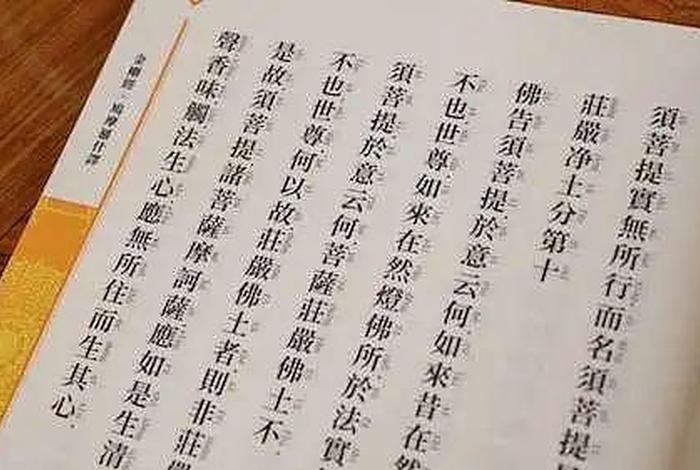 須菩提實無所行而名須菩提
莊嚴净土分第十
佛告須菩提於意云何如來昔在然
不也世尊如來在然燈佛所於法實
須菩提於意云何菩薩莊嚴佛土不.
不也世尊何以故莊嚴佛土者則非莊嚴
是故須菩提諸菩薩摩訶薩應如是生清
聲香味觸法生心應無所住而生其心.
金剛經·鳩摩羅什譯